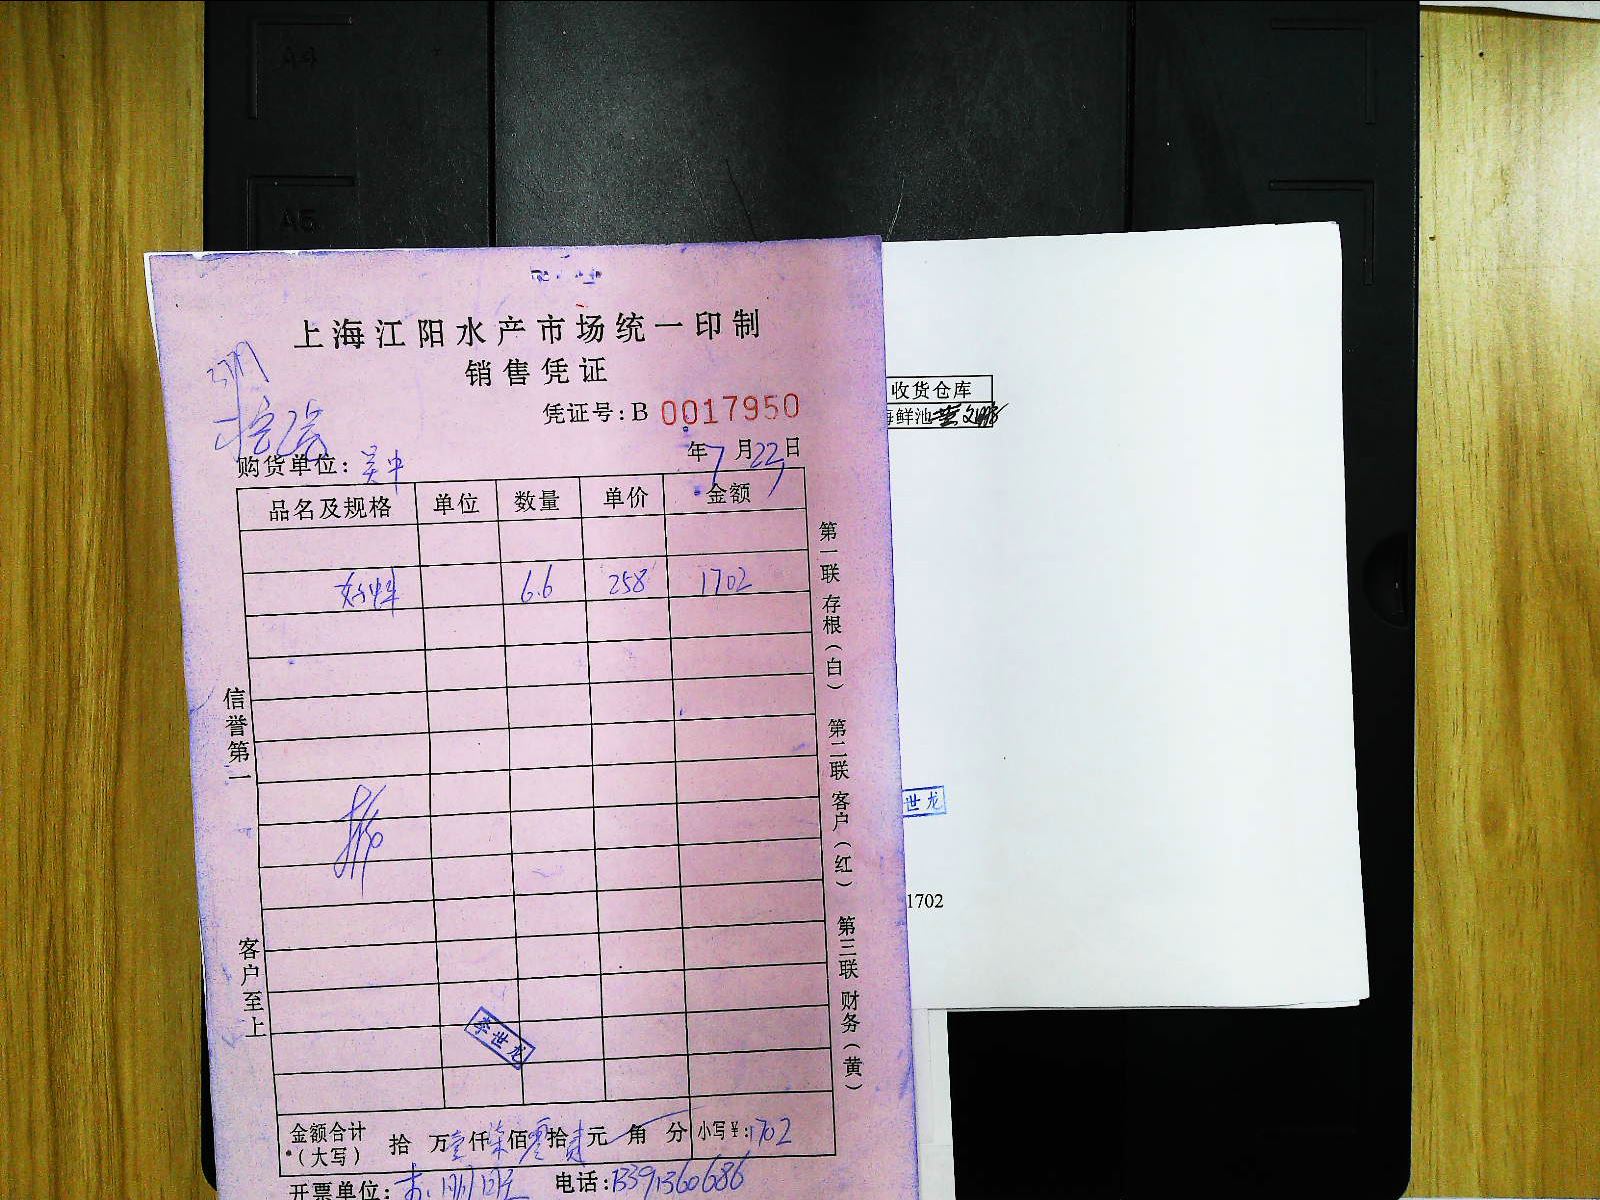 A4
A5
上海江阳水产市场统一印制
销售凭证
凭证号:B 0017950
购货单位:吴中
年7月22日
品名及规格 单位 数量 单价 金额
6.6 258 1702
信誉第一
客户至上
李世龙
第一联 存根(白) 第二联 客户(红) 第三联 财务(黄)
金额合计(大写) 拾 万壹仟柒佰零拾贰元 角 分 小写¥:1702
开票单位: 电话:13391360686
收货仓库
海鲜池
世龙
1702